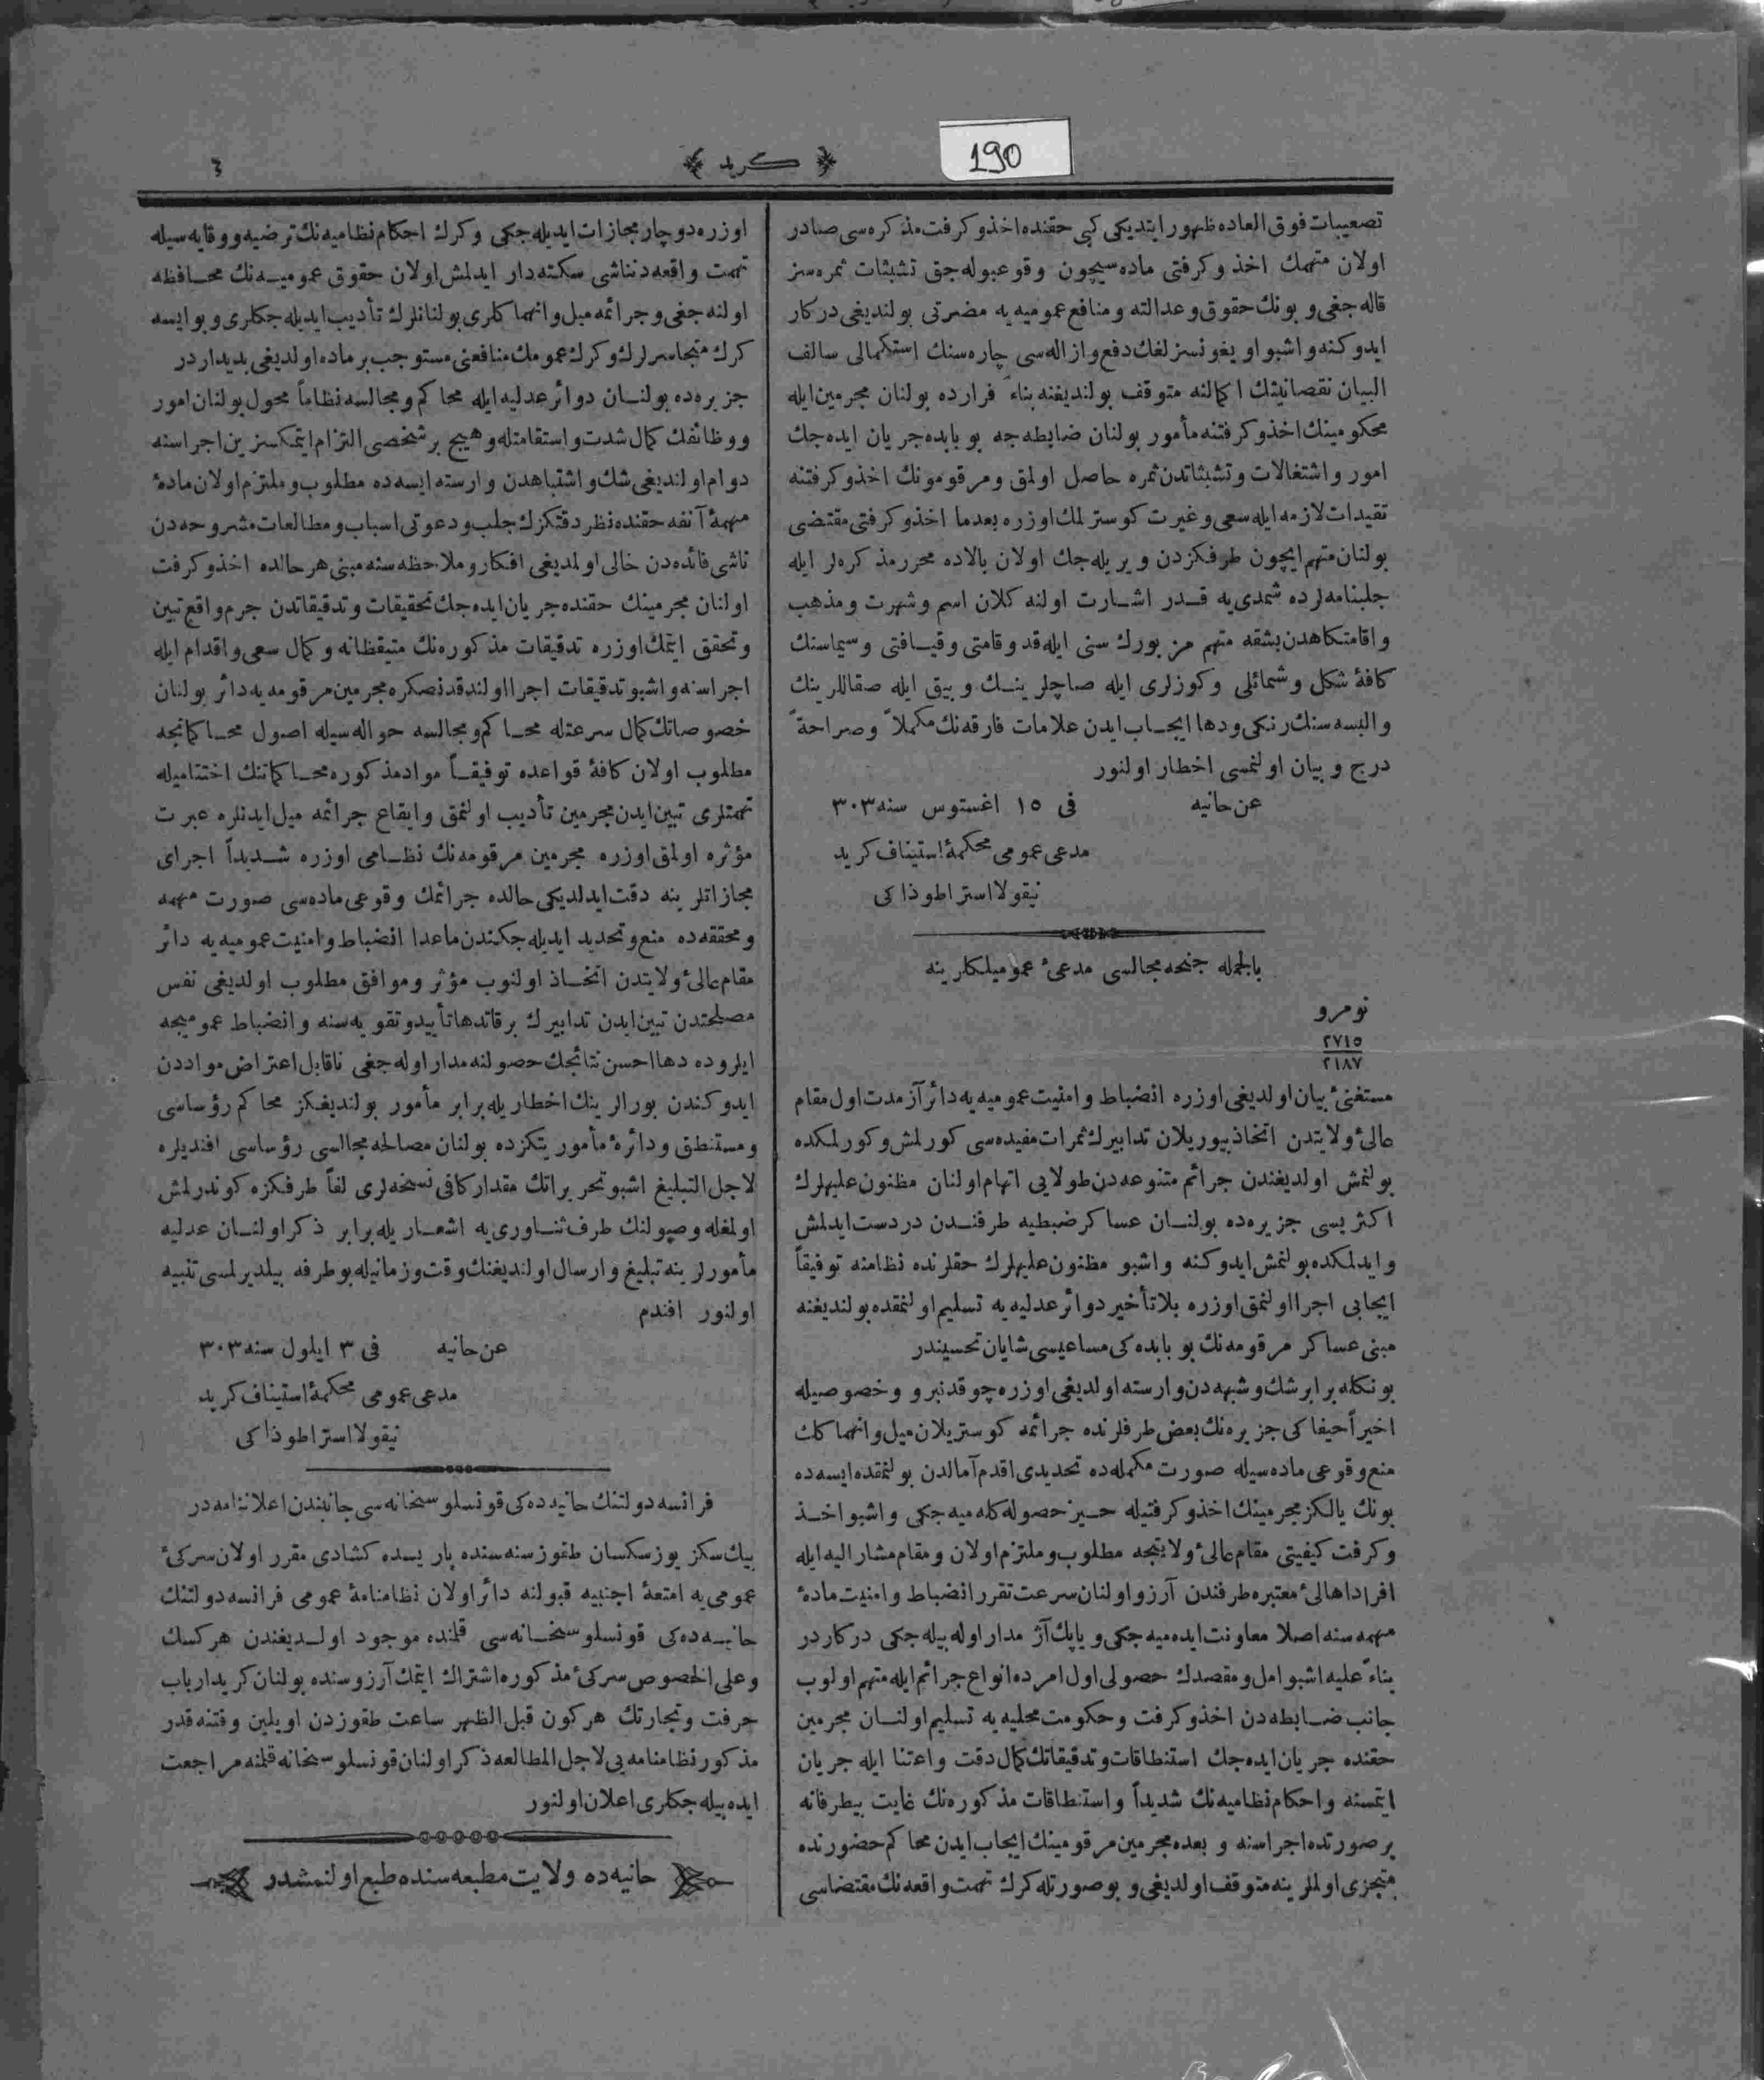 190
﴿ كريد ﴾
٣
تصعيبات فوق العاده ظهور ايتديكى كبى حقنده اخذ و كرفت مذكره سى صادر
اولان متهمك اخذ و كرفتى ماده سيچون وقوعبوله جق تشبثات ثمره سز
قاله جغى و بونك حقوق و عدالته و منافع عموميه يه مضرتى بولنديغى دركار
ايدوكنه و اشبو اويغونسزلغك دفع و ازاله سى چاره سنك استكمالى سالف
البيان نقصانيتك اكمالنه متوقف بولنديغنه بناءً فرارده بولنان مجرمين ايله
محكومينك اخذ و كرفتنه مأمور بولنان ضابطه جه بو بابده جريان ايده جك
امور و اشتغالات و تشبثاتدن ثمره حاصل اولمق و مرقومونك اخذ و كرفتنه
تقيدات لازمه ايله سعى و غيرت كوسترلمك اوزره بعدما اخذ و كرفتى مقتضى
بولنان متهم ايچون طرفكزدن ويريله جك اولان بالاده محرر مذكره لر ايله
جلبنامه لرده شمدى يه قدر اشارت اولنه كلان اسم و شهرت و مذهب
و اقامتكاهدن بشقه متهم مزبورك سنى ايله قد و قامتى و قيافتى و سيماسنك
كافۀ شكل و شمائلى و كوزلرى ايله صاچلرينك و بيق ايله صقاللرينك
و البسه سنك رنكى و دها ايجاب ايدن علامات فارقه نك مكملاً و صراحةً
درج و بيان اولنمسى اخطار اولنور
عن حانيه فى ١٥ اغستوس سنه ٣٠٣
مدعى عمومى محكمۀ استيناف كريد
نيقولا استراطوذاكى
بالجمله جنحه مجالسى مدعىٔ عموميلكلرينه
نومرو
٢٧١٥
٢١٨٧
مستغنىٔ بيان اولديغى اوزره انضباط و امنيت عموميه يه دائر آز مدت اول مقام
عالىٔ ولايتدن اتخاذ بيوريلان تدابيرك ثمرات مفيده سى كورلمش و كورلمكده
بولنمش اولديغندن جرائم متنوعه دن طولايى اتهام اولنان مظنون عليهلرك
اكثريسى جزيره ده بولنان عساكر ضبطيه طرفندن دردست ايدلمش
و ايدلمكده بولنمش ايدوكنه و اشبو مظنون عليهلرك حقلرنده نظامنه توفيقاً
ايجابى اجرا اولنمق اوزره بلا تأخير دوائر عدليه يه تسليم اولنمقده بولنديغنه
مبنى عساكر مرقومه نك بو بابده كى مساعيسى شايان تحسيندر
بونكله برابر شك و شبهه دن وارسته اولديغى اوزره چوقدنبرو و خصوصيله
اخيراً حيفا كى جزيره نك بعض طرفلرنده جرائمه كوستريلان ميل و انهماكك
منع وقوعى ماده سيله صورت مكمله ده تحديدى اقدم آمالدن بولنمقده ايسه ده
بونك يالكز مجرمينك اخذ و كرفتيله حيز حصوله كله ميه جكى و اشبو اخذ
و كرفت كيفيتى مقام عالىٔ ولايتجه مطلوب و ملتزم اولان و مقام مشار اليه ايله
افراد اهالىٔ معتبره طرفندن آرزو اولنان سرعت تقرر انضباط و امنيت مادۀ
مهمه سنه اصلا معاونت ايده ميه جكى و ياپك آز مدار اوله بيله جكى دركاردر
بناءً عليه اشبو امل و مقصدك حصولى اول امرده انواع جرائم ايله متهم اولوب
جانب ضابطه دن اخذ و كرفت و حكومت محليه يه تسليم اولنان مجرمين
حقنده جريان ايده جك استنطاقات و تدقيقاتك كمال دقت و اعتنا ايله جريان
ايتمسنه و احكام نظاميه نك شديداً و استنطاقات مذكوره نك غايت بيطرفانه
بر صورتده اجراسنه و بعده مجرمين مرقومينك ايجاب ايدن محاكم حضورنده
متجزى اولملرينه متوقف اولديغى و بو صورتله كرك تهمت واقعه نك مقتضاسى
اوزره دوچار مجازات ايديله جكى و كرك احكام نظاميه نك ترضيه و وقايه سيله
تهمت واقعه دنناشى سكته دار ايدلمش اولان حقوق عموميه نك محافظه
اولنه جغى و جرائمه ميل و انهماكلرى بولنانلرك تأديب ايديله جكلرى و بو ايسه
كرك متجاسرلرك و كرك عمومك منافعنى مستوجب بر ماده اولديغى بديداردر
جزيره ده بولنان دوائر عدليه ايله محاكم و مجالسه نظاماً محول بولنان امور
و وظائفك كمال شدت و استقامتله و هيچ بر شخصى التزام ايتمكسزين اجراسنه
دوام اولنديغى شك و اشتباهدن وارسته ايسه ده مطلوب و ملتزم اولان مادۀ
مهمۀ آنفه حقنده نظر دقتكزك جلب و دعوتى اسباب و مطالعات مشروحه دن
ناشى فائده دن خالى اولمديغى افكار و ملاحظه سنه مبنى هر حالده اخذ و كرفت
اولنان مجرمينك حقنده جريان ايده جك تحقيقات و تدقيقاتدن جرم واقع تبين
و تحقق ايتمك اوزره تدقيقات مذكوره نك متيقظانه و كمال سعى و اقدام ايله
اجراسنه و اشبو تدقيقات اجرا اولندقدنصكره مجرمين مرقومه يه دائر بولنان
خصوصاتك كمال سرعتله محاكم و مجالسه حواله سيله اصول محاكمانجه
مطلوب اولان كافۀ قواعده توفيقاً مواد مذكوره محاكماتنك اختتاميله
تهمتلرى تبين ايدن مجرمين تأديب اولنمق و ايقاع جرائمه ميل ايدنلره عبرت
مؤثره اولمق اوزره مجرمين مرقومه نك نظامى اوزره شديداً اجراى
مجازاتلرينه دقت ايدلديكى حالده جرائمك وقوعى ماده سى صورت مهمه
و محققه ده منع و تحديد ايديله جكندن ماعدا انضباط و امنيت عموميه يه دائر
مقام عالىٔ ولايتدن اتخاذ اولنوب مؤثر و موافق مطلوب اولديغى نفس
مصلحتدن تبين ايدن تدابيرك بر قاتدها تأييد و تقويه سنه و انضباط عموميجه
ايلروده دها احسن نتائجك حصولنه مدار اوله جغى ناقابل اعتراض مواددن
ايدوكندن بورالرينك اخطاريله برابر مأمور بولنديغكز محاكم رؤساسى
و مستنطق و دائرۀ مأموريتكزده بولنان مصالحه مجالسى رؤساسى افنديلره
لاجل التبليغ اشبو تحريراتك مقدار كافى نسخه لرى لفاً طرفكزه كوندرلمش
اولمغله وصولنك طرف ثناورى يه اشعاريله برابر ذكر اولنان عدليه
مأمورلرينه تبليغ و ارسال اولنديغنك وقت و زمانيله بو طرفه بيلديرلمسى تنبيه
اولنور افندم
عن حانيه فى ٣ ايلول سنه ٣٠٣
مدعى عمومى محكمۀ استيناف كريد
نيقولا استراطوذاكى
فرانسه دولتنك حانيه ده كى قونسلوسخانه سى جانبندن اعلاننامه در
بيك سكز يوز سكسان طقوز سنه سنده پاريسده كشادى مقرر اولان سركىٔ
عمومى يه امتعۀ اجنبيه قبولنه دائر اولان نظامنامۀ عمومى فرانسه دولتنك
حانيه ده كى قونسلوسخانه سى قلمنده موجود اولديغندن هركسك
و على الخصوص سركىٔ مذكوره اشتراك ايتمك آرزوسنده بولنان كريد ارباب
حرفت و تجارتك هركون قبل الظهر ساعت طقوزدن اويلين وقتنه قدر
مذكور نظامنامه يى لاجل المطالعه ذكر اولنان قونسلوسخانه قلمنه مراجعت
ايده بيله جكلرى اعلان اولنور
حانيه ده ولايت مطبعه سنده طبع اولنمشدر